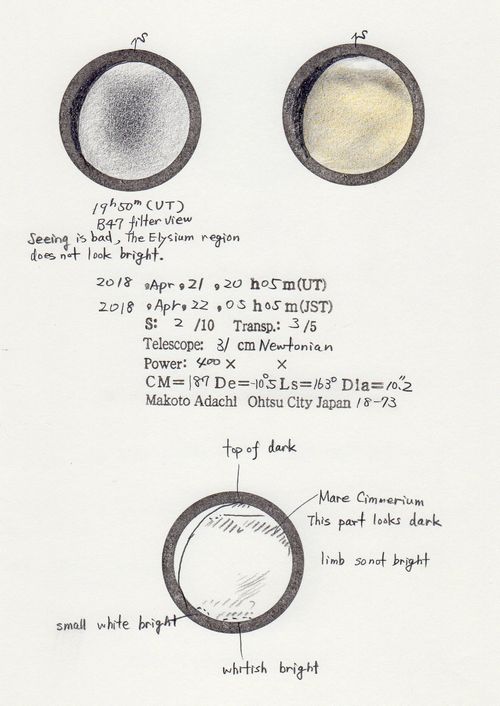 19h50m(UT)
B47 filter view
Seeing is bad, The Elysium region
does not look bright.
2018 ,Apr, 21 , 20 h 05 m(UT)
2018 ,Apr, 22 , 05 h 05 m(JST)
S: 2 /10 Transp.: 3/5
Telescope: 31 cm Newtonian
Power: 400 × ×
CM=187 De=-10°.5 Ls=163° Dia=10."2
Makoto Adachi Ohtsu City Japan 18-73
top of dark
Mare Cimmerium
This part looks dark
limb so not bright
small white bright
whitish bright